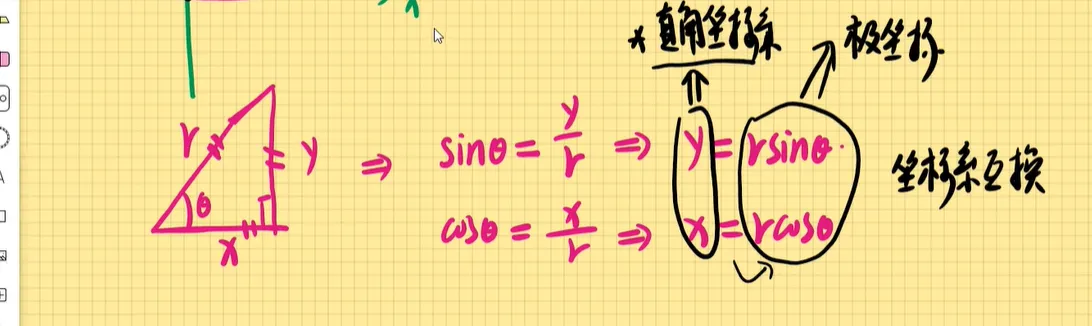 * 直角坐标系
极坐标
r
y
θ
x
⇒ sinθ = y/r ⇒ y = rsinθ
cosθ = x/r ⇒ x = rcosθ
坐标系互换